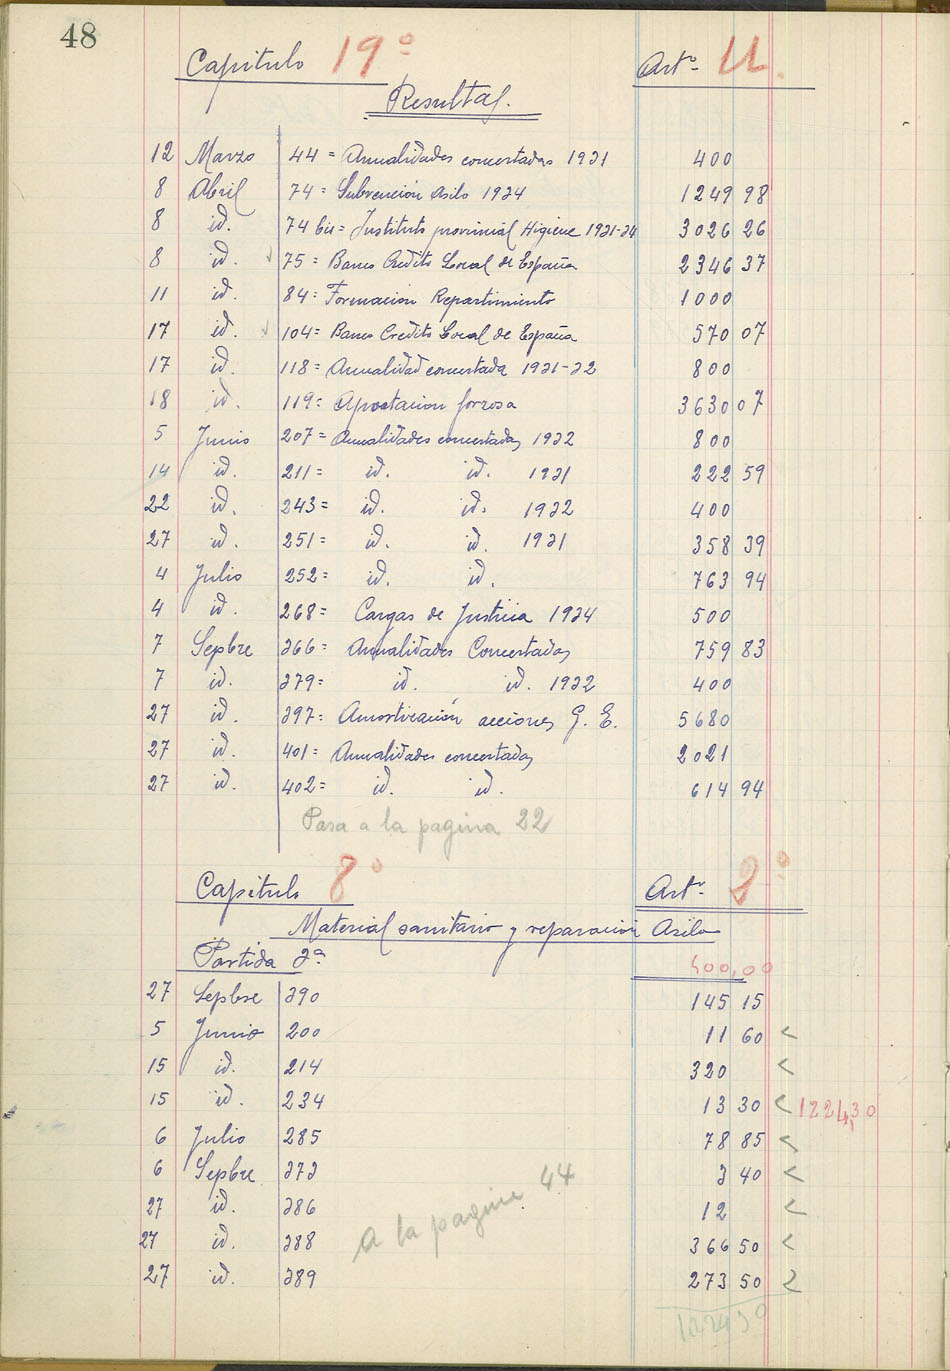 48
Capitulo 19º Artº U.
Resultas.
12 Marzo 44 = Anualidades concertadas 1931 400
8 Abril 74 = Subvención Asilo 1934 1249 98
8 id. 74 bis = Instituto provincial Higiene 1931-34 3026 26
8 id. 75 = Banco Credito Local de España 2346 37
11 id. 84 = Formación Repartimiento 1000
17 id. 104 = Banco Credito Local de España 570 07
17 id. 118 = Anualidad concertada 1931-32 800
18 id. 119 = Aportacion forzosa 3630 07
5 Junio 207 = Anualidades concertadas 1932 800
14 id. 211 = id. id. 1931 222 59
22 id. 243 = id. id. 1932 400
27 id. 251 = id. id. 1931 358 39
4 Julio 252 = id. id. 763 94
4 id. 268 = Cargas de Justicia 1934 500
7 Sepbre 366 = Anualidades Concertadas 759 83
7 id. 379 = id. id. 1932 400
27 id. 397 = Amortización acciones G. E. 5680
27 id. 401 = Anualidades concertadas 2021
27 id. 402 = id. id. 614 94
Pasa a la pagina 22
Capitulo 8º Artº 2º
Material sanitario y reparación Asilo
Partida 3ª 400,00
27 Sepbre 390 145 15
5 Junio 200 11 60 <
15 id. 214 320 <
15 id. 234 13 30 < 1224,30
6 Julio 285 78 85 <
6 Sepbre 373 3 40 <
27 id. 386 12 <
27 id. 388 366 50 <
27 id. 389 273 50 <
a la pagina 44
1224 30